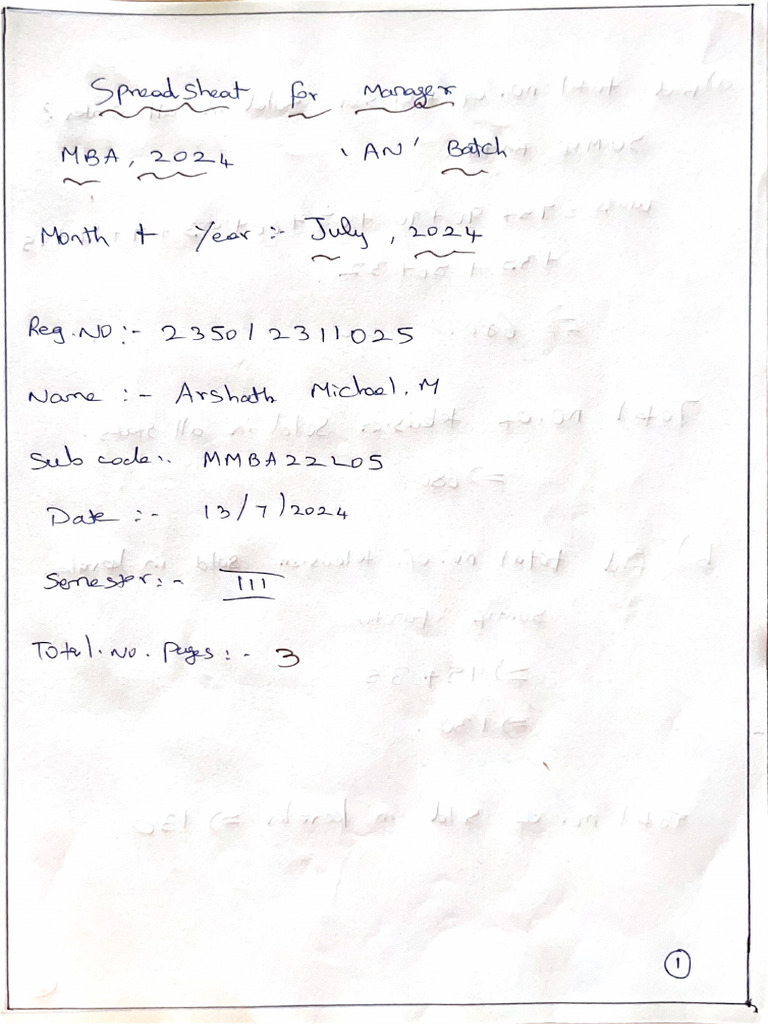 Spreadsheat for Manager
MBA, 2024 'AN' Batch
Month + Year :- July, 2024
Reg.NO :- 23501 2311025
Name :- Arshath Michael.M
Sub code :- MMBA22L05
Date :- 13/7/2024
Semester :- III
Total.No.Pages :- 3
1